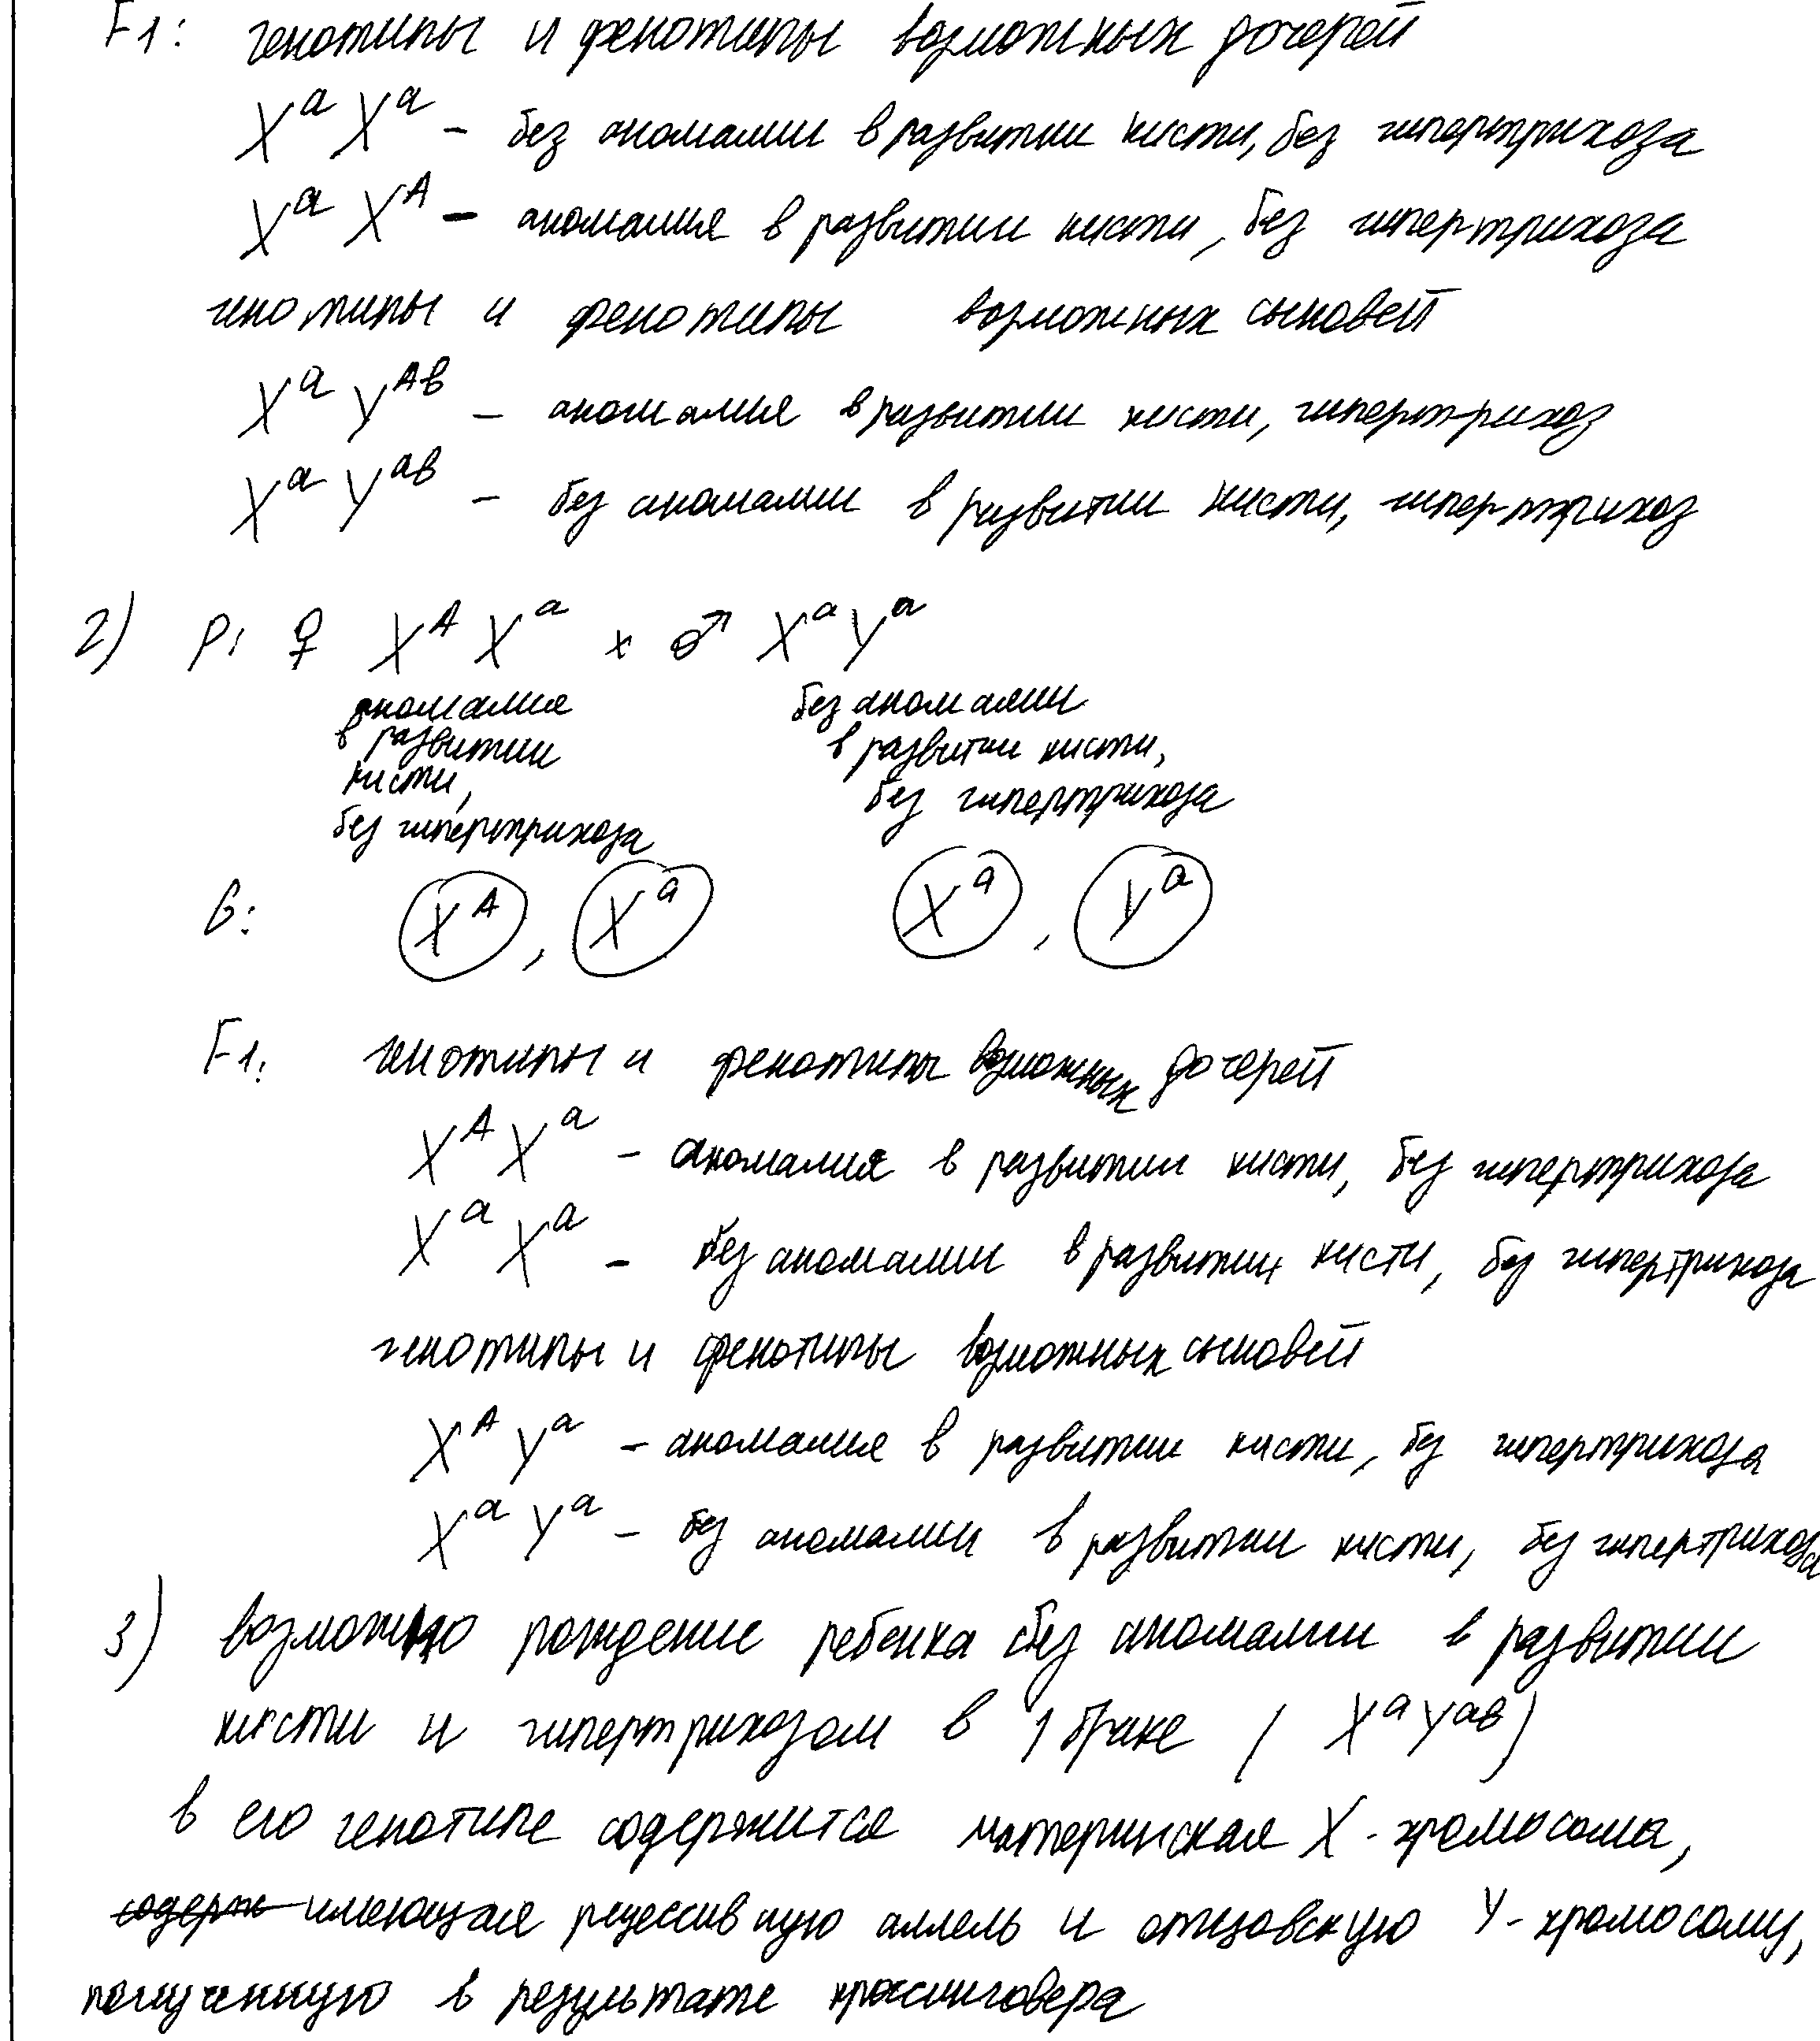 F1: генотипы и фенотипы возможных дочерей
XᵃXᵃ – без аномалии в развитии кисти, без гипертрихоза
XᵃXᴬ – аномалия в развитии кисти, без гипертрихоза
генотипы и фенотипы возможных сыновей
XᵃYᴬᵇ – аномалия в развитии кисти, гипертрихоз
XᵃYᵃᵇ – без аномалии в развитии кисти, гипертрихоз
2) P: ♀ XᴬXᵃ x ♂ XᵃYᵃ
аномалия без аномалии
в развитии в развитии кисти,
кисти, без гипертрихоза
без гипертрихоза
G: Xᴬ, Xᵃ Xᵃ, Yᵃ
F1: генотипы и фенотипы возможных дочерей
XᴬXᵃ – аномалия в развитии кисти, без гипертрихоза
XᵃXᵃ – без аномалии в развитии кисти, без гипертрихоза
генотипы и фенотипы возможных сыновей
XᴬYᵃ – аномалия в развитии кисти, без гипертрихоза
XᵃYᵃ – без аномалии в развитии кисти, без гипертрихоза
3) возможно рождение ребенка без аномалии в развитии
кисти и гипертрихозом в 1 браке (XᵃYᵃᵇ)
в его генотипе содержится материнская X-хромосома,
содерж имеющая рецессивную аллель и отцовскую Y-хромосому,
полученную в результате кроссинговера